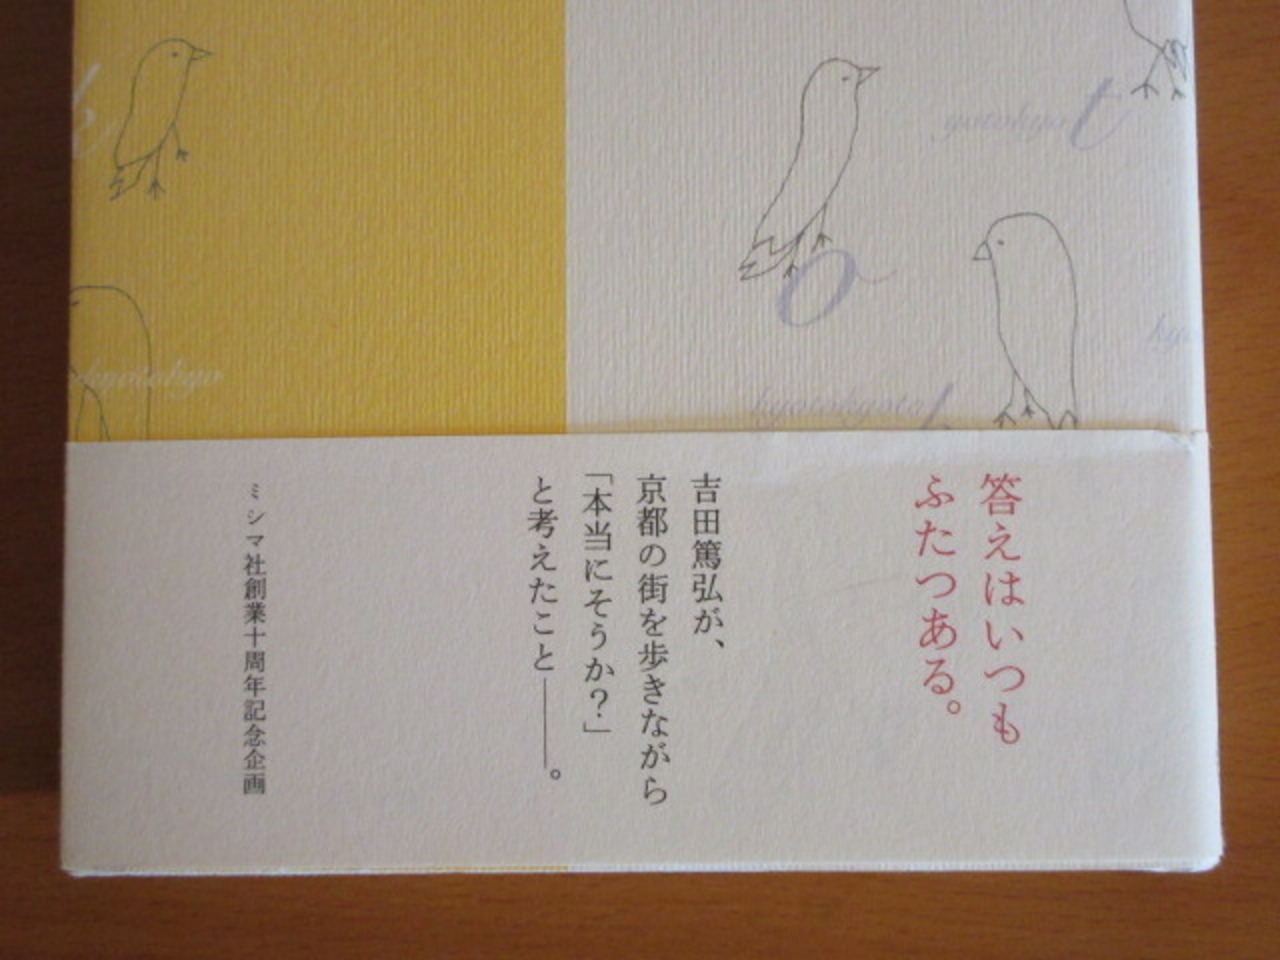 答えはいつも
ふたつある。
吉田篤弘が、
京都の街を歩きながら
「本当にそうか？」
と考えたこと――。
ミシマ社創業十周年記念企画
yotokyo t
o
kyotokyoto
k
kyotokyo